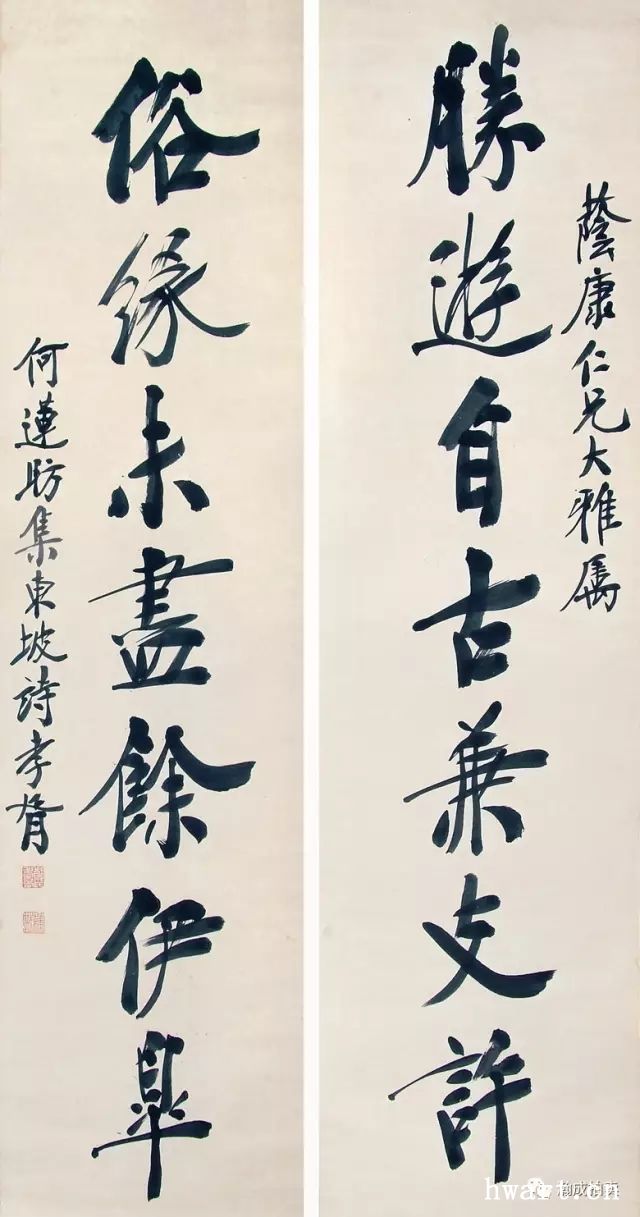 蔭康仁兄大雅屬
勝遊自古兼支許
俗緣未盡餘伊皋
何蓮舫集東坡詩孝胥
瀚成拍卖
hwart.cn